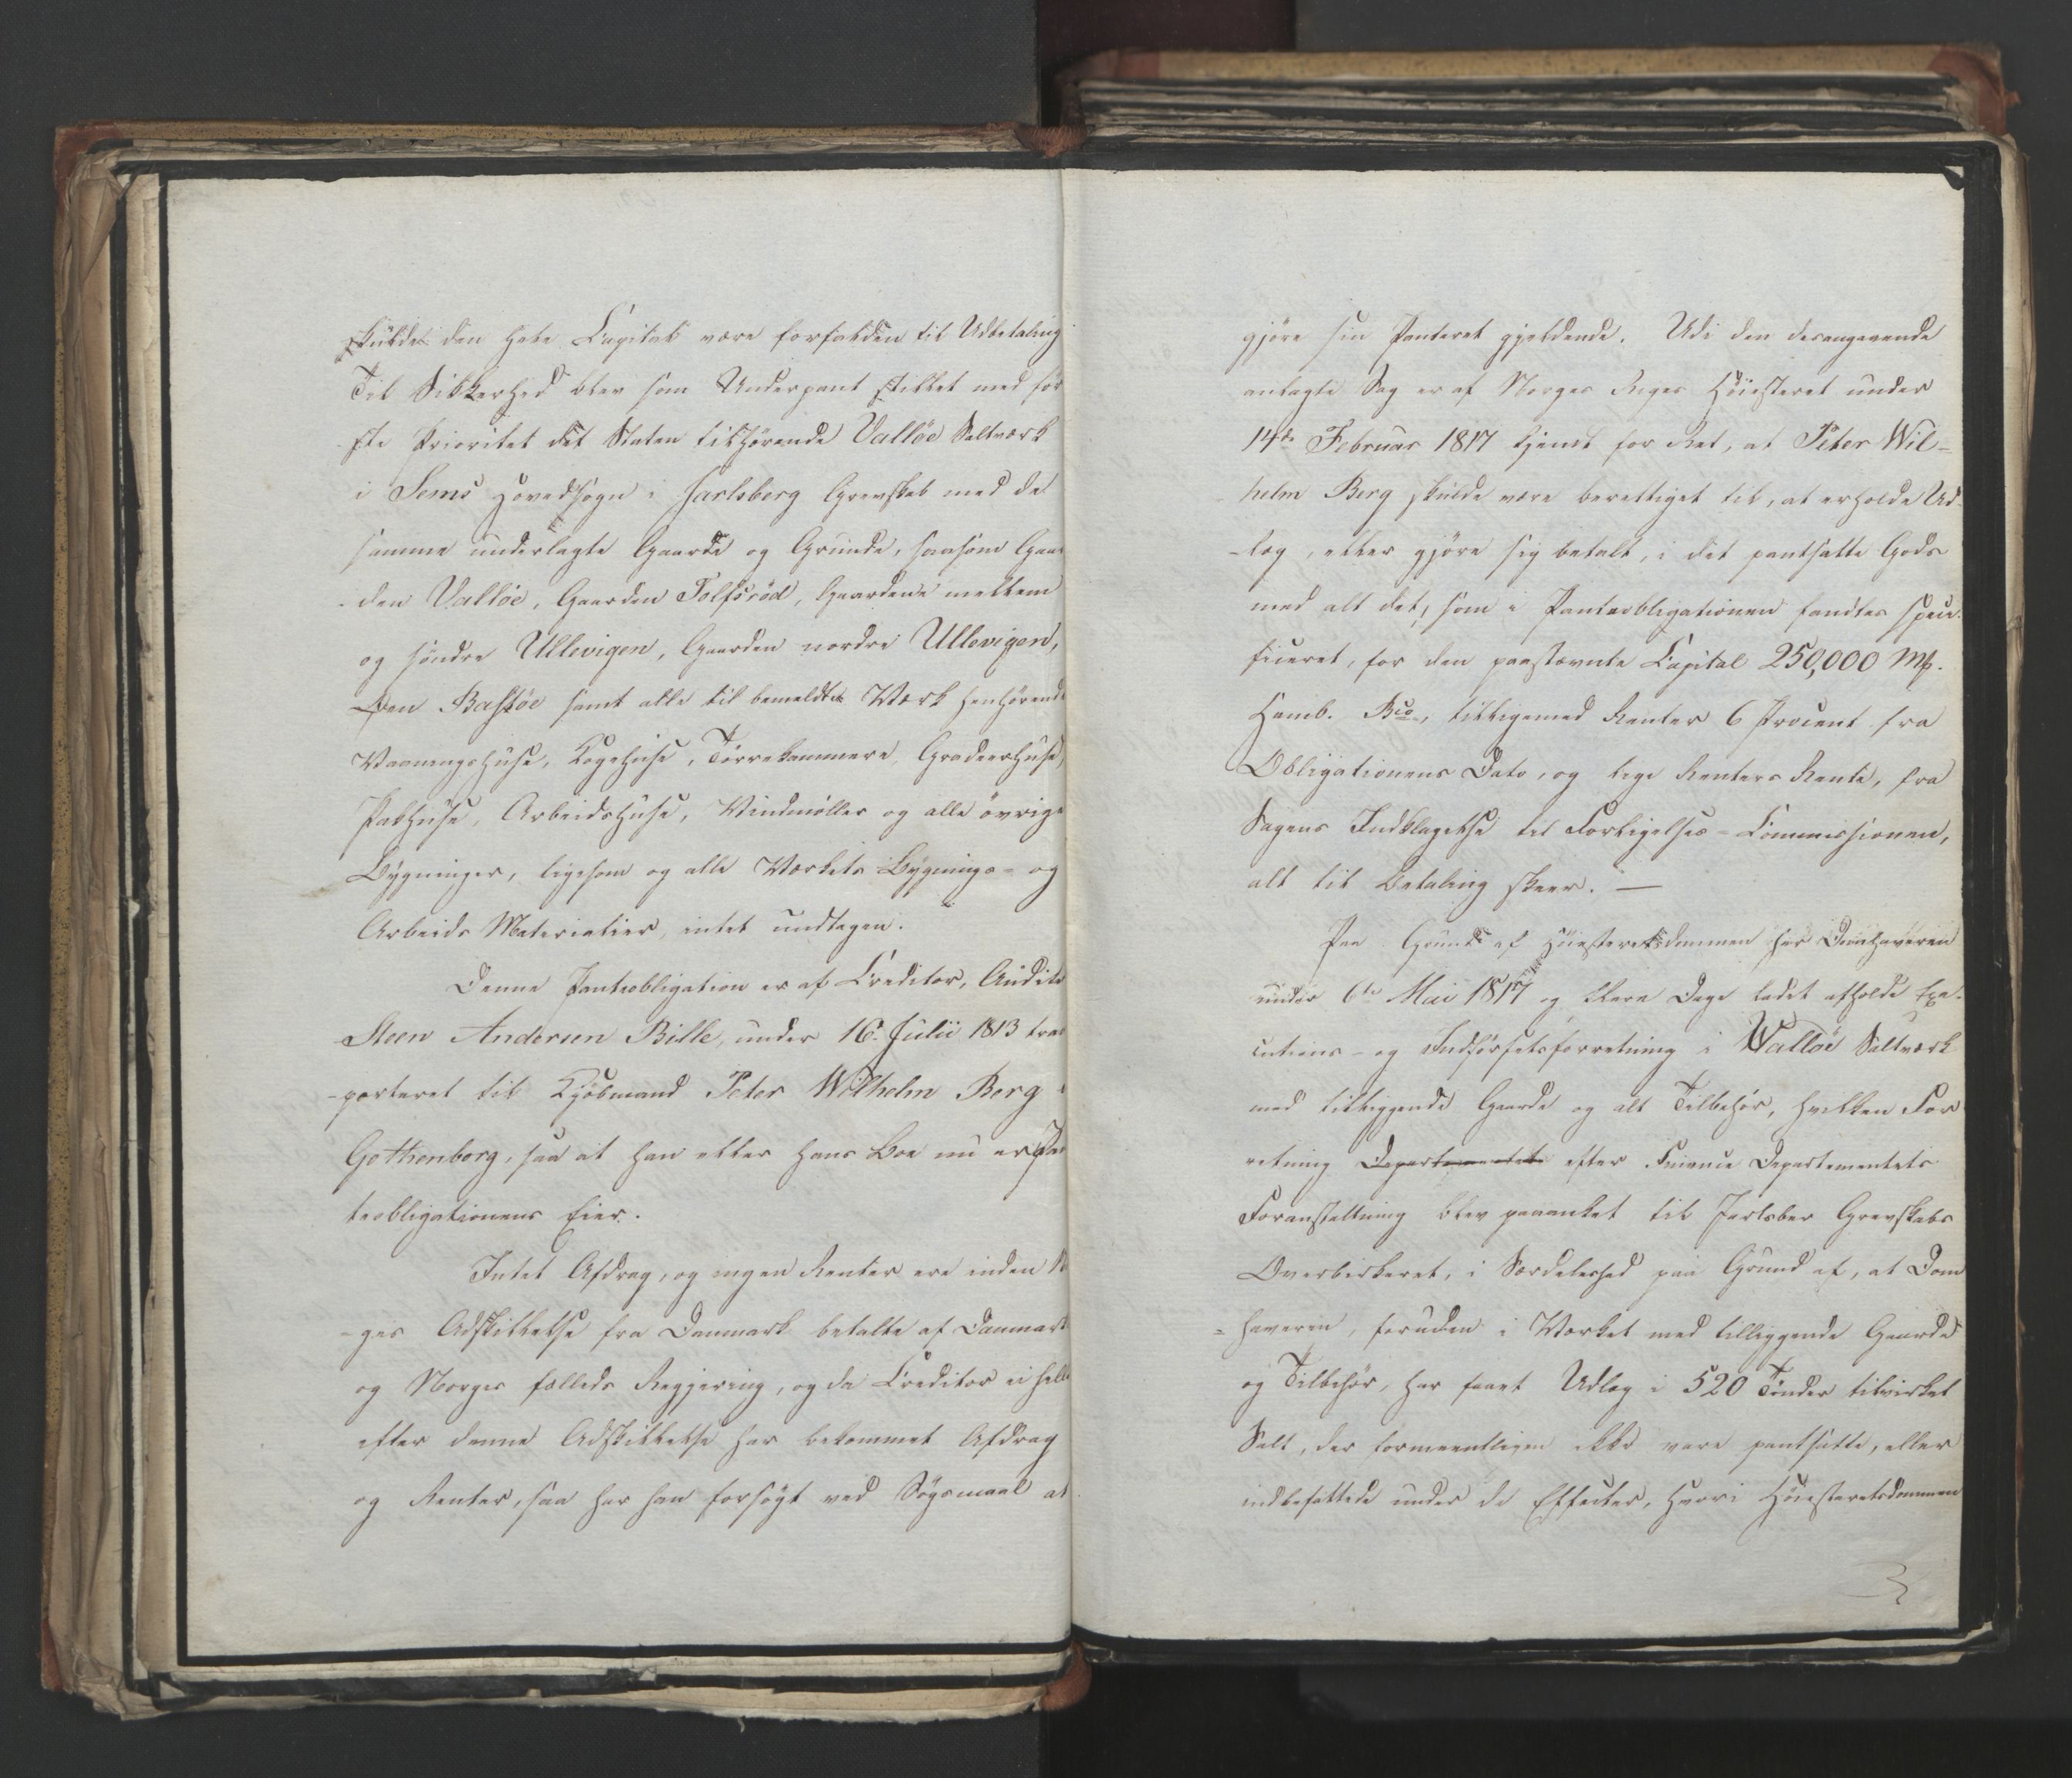 skulde den hele Capital være forfalden til Udbetaling
Til Sikkerhed blev som Underpant stillet med før
ste Prioritet det Staten tilhørende Valløe Saltværk
i Sems Hovedsogn i Jarlsberg Grevskab med de
samme underlagte Gaarde og Grunde, saasom Gaar
-den Valløe, Gaarden Tolfsrød, Gaardene mellem
og søndre Ullevigen, Gaarden nordre Ullevigen,
Øen Bastøe samt alle til bemeldte Værk henhørende
Vaaningshuse, Kogehuse, Tørrekammere, Gradeerhuse,
Pakhuse, Arbeidshuse, Vindmøller og alle øvrige
Bygninger, ligesom og alle Værkets Bygnings- og
Arbeids Materialier, intet undtagen.
Denne Panteobligation er af Creditor, Audite
Steen Andersen Bille, under 16. Julii 1813 trans
-porteret til Kjøbmand Peter Wilhelm Berg i
Gothenborg, saa at han eller hans Boe nu er Pan
teobligationens Eier.
Intet Afdrag, og ingen Renter ere inden No
-ges Adskillelse fra Danmark betalte af Danmark
og Norges fælleds Regjering, og da Creditor ei helle
efter denne Adskillelse har bekommet Afdrag
og Renter, saa har han forsøgt ved Søgsmaal at
gjøre sin Panteret gjeldende. Udi den desangaaende
anlagte Sag er af Norges Riges Høiesteret under
14de Februar 1817 kjendt for Ret, at Peter Wil-
helm Berg skulde være berettiget til, at erholde Ud-
-læg, eller gjøre sig betalt, i det pantsatte Gods
med alt det, som i Panteobligationen fandtes speci-
ficeret, for den paastævnte Capital 250,000 Mk.
Hamb. Bco, tilligemed Renter 6 Procent fra
Obligationens Dato, og lige Renters Rente, fra
Sagens Indklagelse til Forligelses-Commissionen,
alt til Betaling skeer. —
Paa Grund af Høiesteretsdommen har Domhaveren
under 6te Mai 1817 og flere Dage ladet afholde Exe-
cutions- og Indførselsforretning i Walløe Saltværk
med tilliggende Gaarde og alt Tilbehør, hvilken For
retning Departementets efter Finance Departementets
Foranstaltning blev paaanket til Jarlsber Grevskabs
Overbirkeret, i Særdeleshed paa Grund af, at Dom
-haveren, foruden i Værket med tilliggende Gaarde
og Tilbehør, har faaet Udlæg i 520 Tønder tilvirket
Salt, der formeentligen ikke vare pantsatte, eller
indbefattede under de Effecter, hvori Høiesteretsdommen